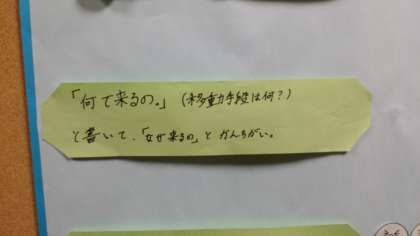 「何で来るの。」(移動手段は何?)
と書いて、「なぜ来るの」とかんちがい。